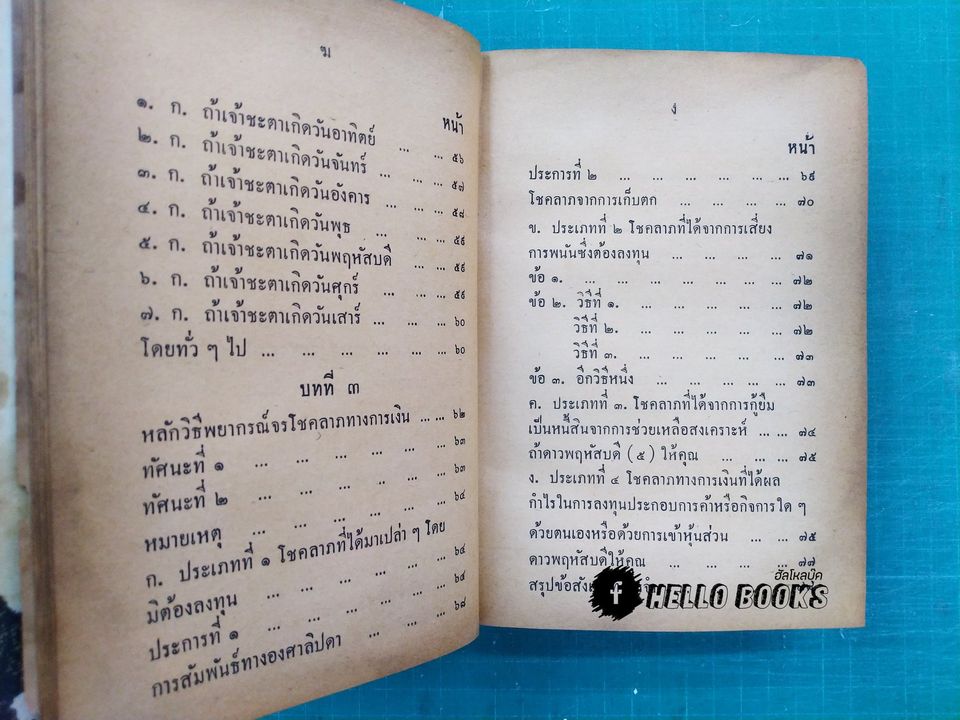 ฆ
หน้า
๑. ก. ถ้าเจ้าชะตาเกิดวันอาทิตย์ ... ... ๕๖
๒. ก. ถ้าเจ้าชะตาเกิดวันจันทร์ ... ... ... ๕๗
๓. ก. ถ้าเจ้าชะตาเกิดวันอังคาร ... ... ... ๕๘
๔. ก. ถ้าเจ้าชะตาเกิดวันพุธ ... ... ... ๕๙
๕. ก. ถ้าเจ้าชะตาเกิดวันพฤหัสบดี ... ... ๕๙
๖. ก. ถ้าเจ้าชะตาเกิดวันศุกร์ ... ... ... ๕๙
๗. ก. ถ้าเจ้าชะตาเกิดวันเสาร์ ... ... ... ๖๐
โดยทั่ว ๆ ไป ... ... ... ... ... ... ๖๐
บทที่ ๓
หลักวิธีพยากรณ์จรโชคลาภทางการเงิน ... ... ๖๒
ทัศนะที่ ๑ ... ... ... ... ... ๖๓
ทัศนะที่ ๒ ... ... ... ... ... ๖๓
หมายเหตุ ... ... ... ... ... ... ๖๔
ก. ประเภทที่ ๑ โชคลาภที่ได้มาเปล่า ๆ โดย
มิต้องลงทุน ... ... ... ... ... ๖๔
ประการที่ ๑ ... ... ... ... ... ๖๔
การสัมพันธ์ทางองศาลิปดา ... ... ... ๖๘
ง
หน้า
ประการที่ ๒ ... ... ... ... ... ... ๖๙
โชคลาภจากการเก็บตก ... ... ... ... ๗๐
ข. ประเภทที่ ๒ โชคลาภที่ได้จากการเสี่ยง
การพนันซึ่งต้องลงทุน ... ... ... ... ๗๑
ข้อ ๑. ... ... ... ... ... ... ... ๗๒
ข้อ ๒. วิธีที่ ๑. ... ... ... ... ... ๗๒
วิธีที่ ๒. ... ... ... ... ... ๗๒
วิธีที่ ๓. ... ... ... ... ... ๗๓
ข้อ ๓. อีกวิธีหนึ่ง ... ... ... ... ... ๗๓
ค. ประเภทที่ ๓. โชคลาภที่ได้จากการกู้ยืม
เป็นหนี้สินจากการช่วยเหลือสงเคราะห์ ... ... ๗๔
ถ้าดาวพฤหัสบดี (๕) ให้คุณ ... ... ... ๗๕
ง. ประเภทที่ ๔ โชคลาภทางการเงินที่ได้ผล
กำไรในการลงทุนประกอบการค้าหรือกิจการใด ๆ
ด้วยตนเองหรือด้วยการเข้าหุ้นส่วน ... ... ๗๕
ดาวพฤหัสบดีให้คุณ ... ... ... ... ๗๗
สรุปข้อ
ฮัลโหลบุ๊ค
f HELLO BOOKS